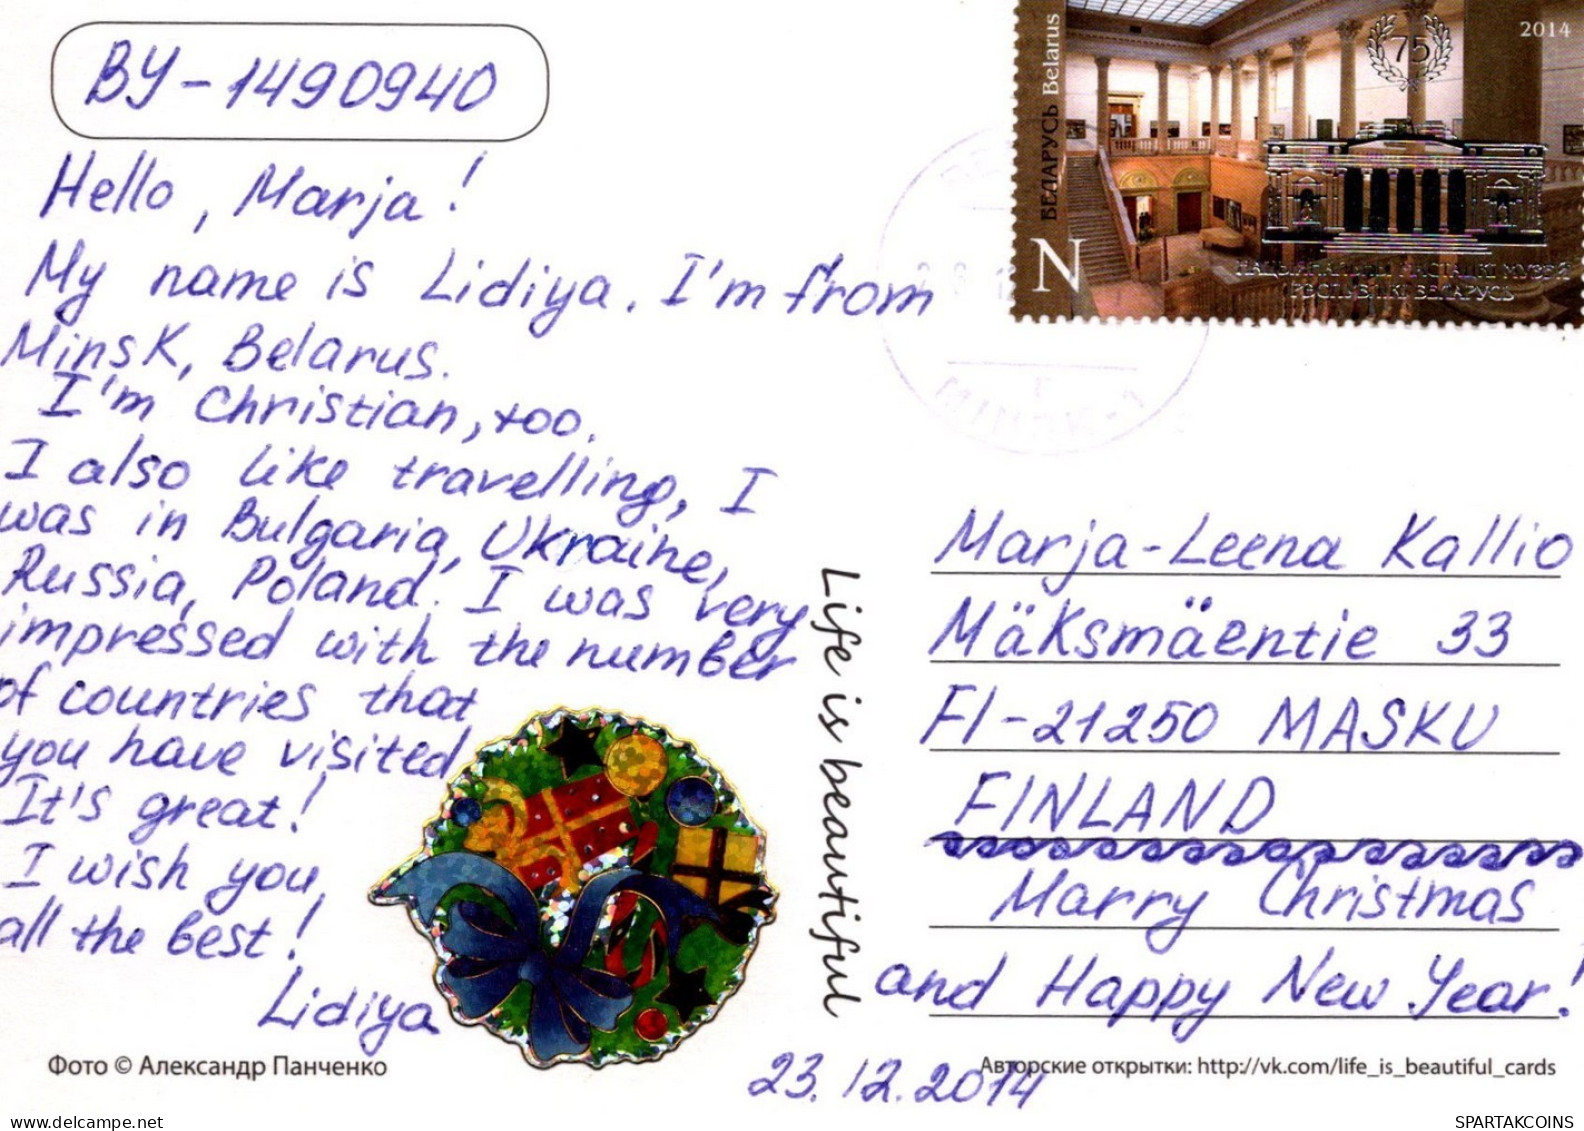 BY-1490940
Hello, Marja!
My name is Lidiya. I'm from
Minsk, Belarus.
I'm Christian, too.
I also like travelling, I
was in Bulgaria, Ukraine,
Russia, Poland. I was very
impressed with the number
of countries that
you have visited
It's great!
I wish you,
all the best!
Lidiya
Фото © Александр Панченко
Life is beautiful
БЕЛАРУСЬ Belarus
2014
75
N
НАЦЫЯНАЛЬНЫ МАСТАЦКІ МУЗЕЙ
РЭСПУБЛІКІ БЕЛАРУСЬ
Marja-Leena Kallio
Mäksmäentie 33
FI-21250 MASKU
FINLAND
Marry Christmas
and Happy New Year!
23.12.2014
Авторские открытки: http://vk.com/life_is_beautiful_cards
SPARTAKCOINS
www.delcampe.net